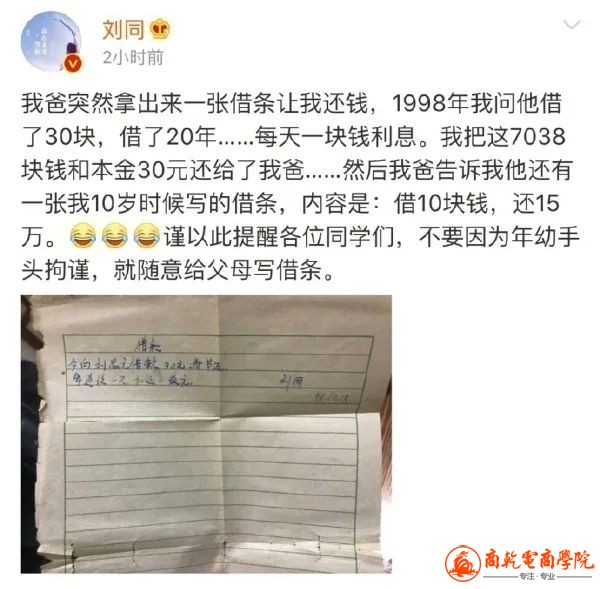 刘同
2小时前
我爸突然拿出来一张借条让我还钱，1998年我问他借
了30块，借了20年……每天一块钱利息。我把这7038
块钱和本金30元还给了我爸……然后我爸告诉我他还有
一张我10岁时候写的借条，内容是：借10块钱，还15
万。😂😂😂谨以此提醒各位同学们，不要因为年幼手
头拘谨，就随意给父母写借条。
借条
今向刘忠元借款30元.春节还
每延误一天
刘同
商乾电商學院
专注·专业